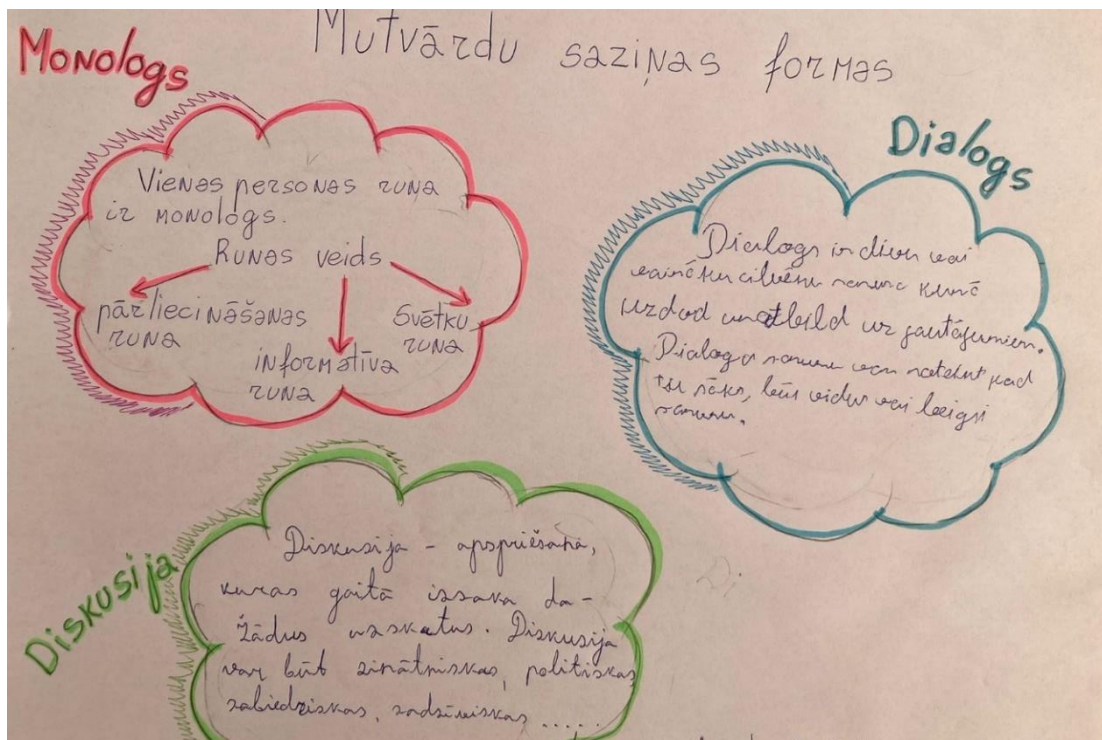 Mutvārdu saziņas formas
Monologs
Vienas personas runa
ir monologs.
Runas veids
pārliecināšanas
runa
informatīva
runa
Svētku
runa
Dialogs
Dialogs ir divu vai
vairāku cilvēku saruna kurā
uzdod un atbild uz jautājumiem.
Dialogu sarunu var noteikt kad
tu sāks, būs vidus vai beigsi
sarunu.
Diskusija
Diskusija - apspriešana,
kuras gaitā izsaka da-
žādus uzskatus. Diskusija
var būt zinātniskas, politiskas,
sabiedriskas, sadzīviskas .....
Di